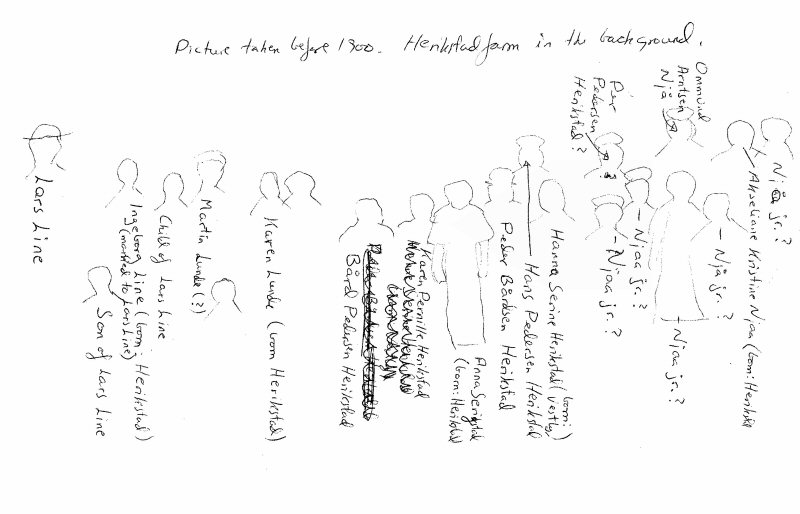 Picture taken before 1900. Henikstad farm in the background.
Lars Line
Ingeborg Line (born: Henikstad)
(married to Lars Line)
Son of Lars Line
Child of Lars Line
Martin Lunde (?)
Karen Lunde (born Henikstad)
Bård Pedersen Henikstad
Karen Pernille Henikstad
Anna Serikstad
(born: Henikstad
Peder Bårdsen Henikstad
Hans Pedersen Henikstad
Hanna Serine Henikstad (born:
Vestly)
Per
Pedersen
Henikstad?
?
- Njaa jr.?
- Njaa jr.?
Ommund
Arntsen
Njå
- Njaa jr.?
- Njå jr.?
Akseliane Kristine Njaa (born: Henikstad
Njå jr.?